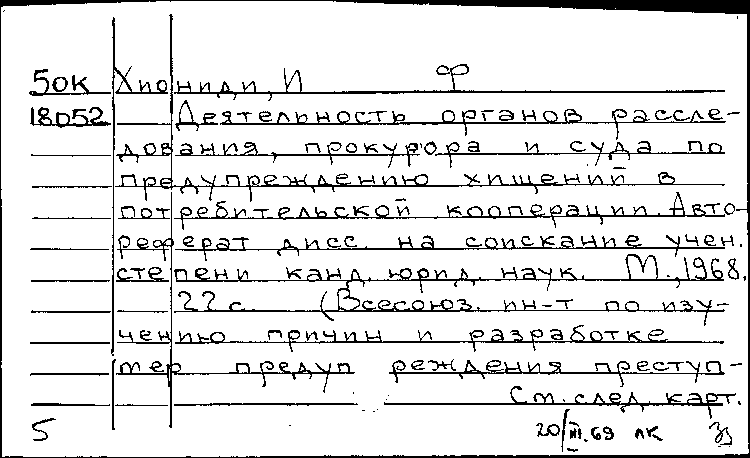 50К Хиониди, И Ф
18052 Деятельность органов рассле-
дования, прокурора и суда по
предупреждению хищений в
потребительской кооперации. Авто-
реферат дисс. на соискание учен.
степени канд. юрид. наук. М., 1968.
22 с. (Всесоюз. ин-т по изу-
чению причин и разработке
мер предуп реждения преступ-
См. след. карт.
5 20/III.69 лк